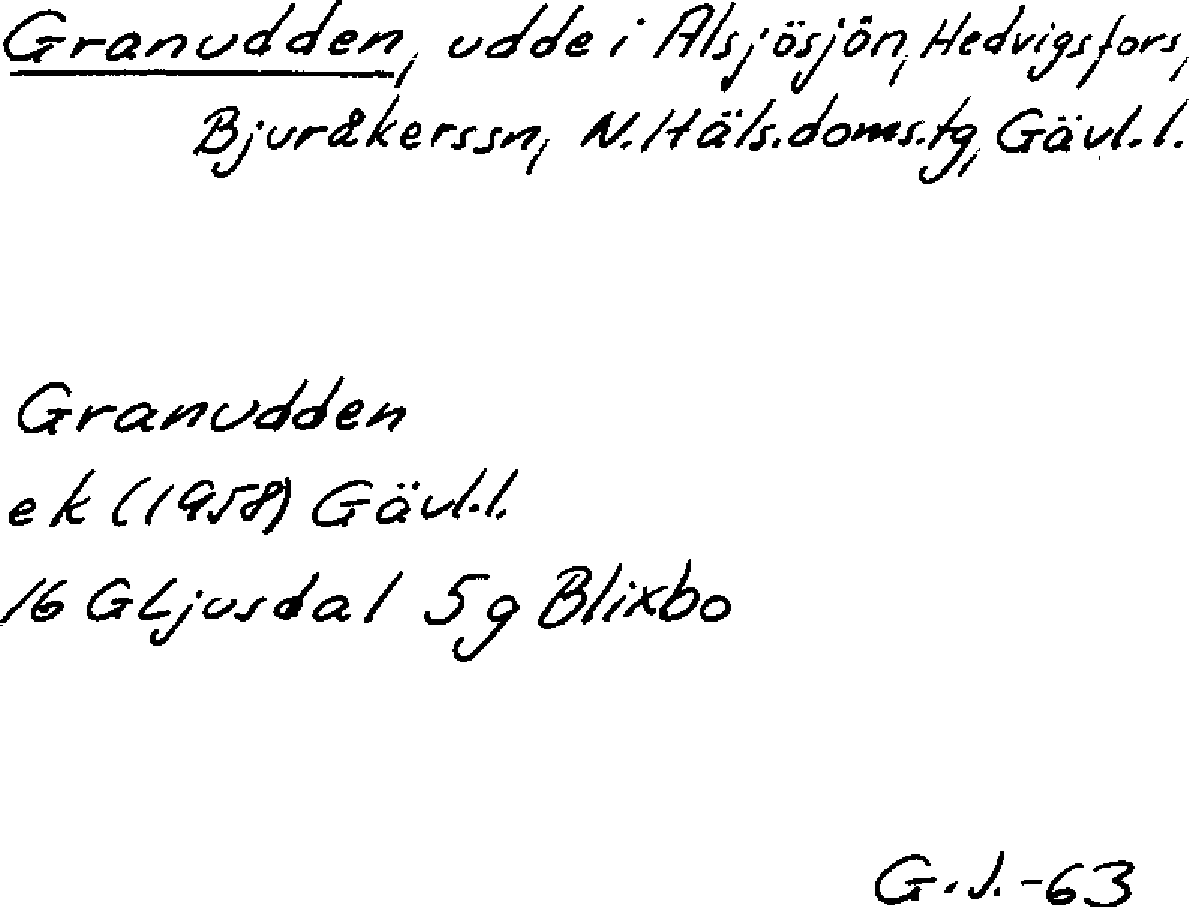 Granudden, udde i Alsjösjön, Hedvigsfors,
Bjuråkerssn, N. Häls. doms. tg, Gävl. l.
Granudden
ek (1958) Gävl. l.
16 G Ljusdal 5 g Blixbo
G. J. -63